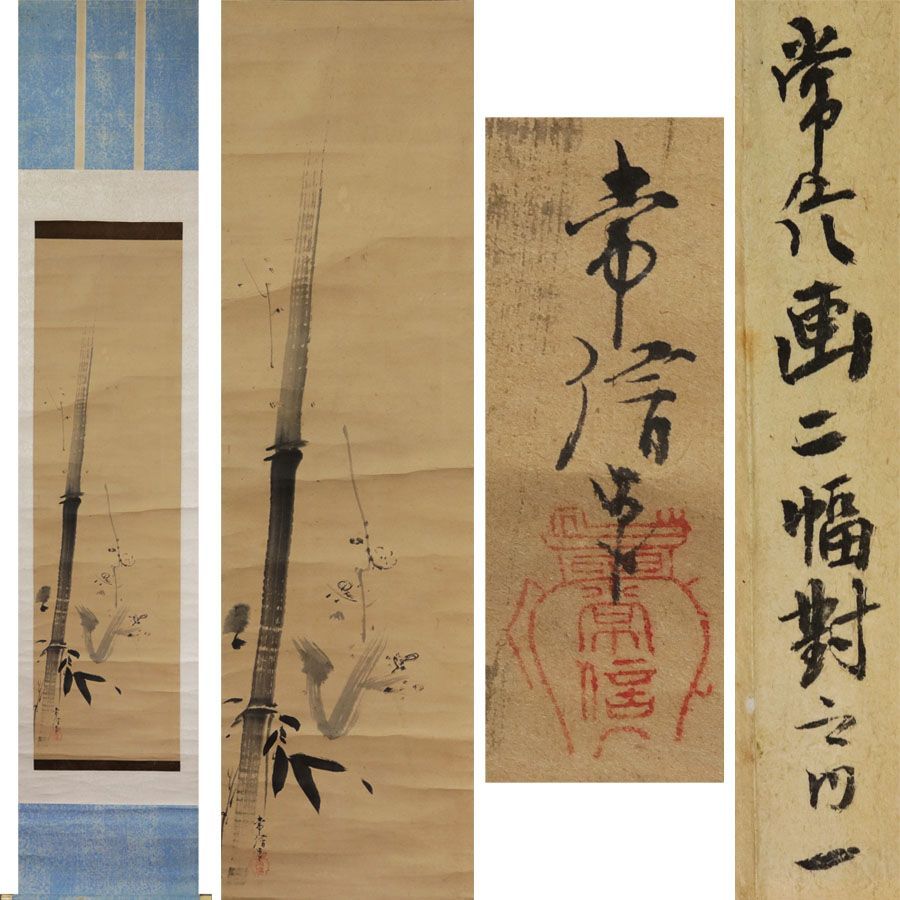 常信筆
常信
常信画二幅對之内一